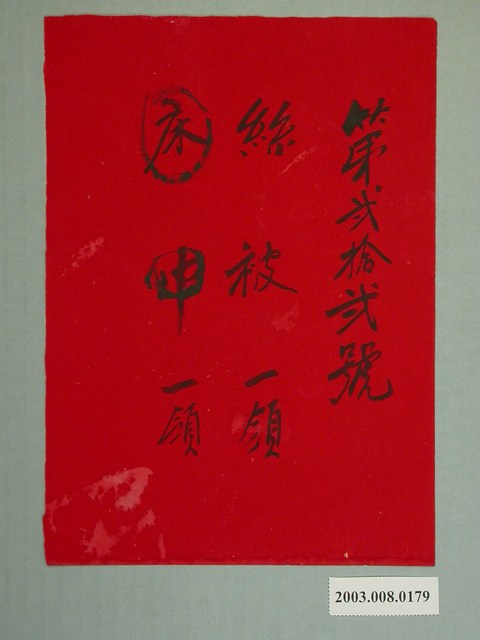 第弍拾弍號
絲被一領
床申一領
2003.008.0179